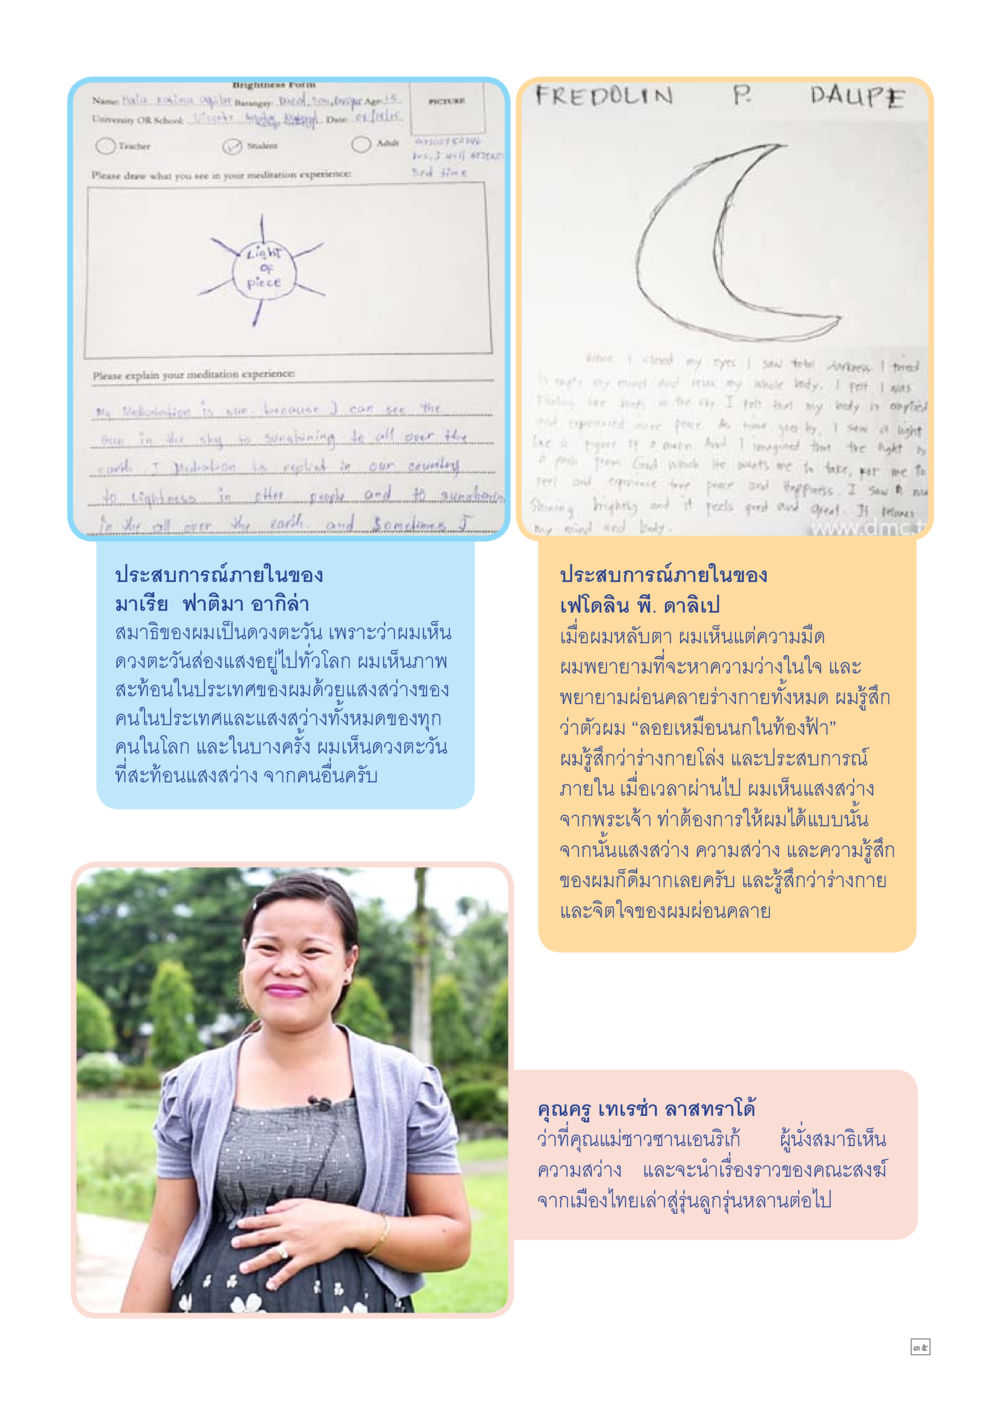 Brightness Form
Name: Maria Fatima Aguilar Barangay: Age: 15
University OR School: Vicente National Date:
PICTURE
Teacher
Student
Adult
Yes, I will attend
3rd time
Please draw what you see in your meditation experience:
Light
of
piece
Please explain your meditation experience:
My Mediatation is sun because I can see the
sun in the sky to sunshining to all over the
earth. I Mediation is replict in our country
to Lightness in other people and to sunshine
in the all over the earth. and Sometimes I
FREDOLIN P. DALIPE
When I closed my eyes I saw total darkness I tried
to empty my mind and relax my whole body. I felt I was
Floating like birds in the sky I felt that my body is emptied
and experienced inner peace As time goes by, I saw a light
like a figure of a moon. And I imagined that the light is
a path from God which He wants me to take, for me to
feel and experience true peace and Happiness. I saw it
Shining brightly and it feels good and great. It relaxes
my mind and body.
www.dmc.t
ประสบการณ์ภายในของ
มาเรีย ฟาติมา อากิล่า
สมาธิของผมเป็นดวงตะวัน เพราะว่าผมเห็น
ดวงตะวันส่องแสงอยู่ไปทั่วโลก ผมเห็นภาพ
สะท้อนในประเทศของผมด้วยแสงสว่างของ
คนในประเทศและแสงสว่างทั้งหมดของทุก
คนในโลก และในบางครั้ง ผมเห็นดวงตะวัน
ที่สะท้อนแสงสว่าง จากคนอื่นครับ
ประสบการณ์ภายในของ
เฟโดลิน พี. ดาลิเป
เมื่อผมหลับตา ผมเห็นแต่ความมืด
ผมพยายามที่จะหาความว่างในใจ และ
พยายามผ่อนคลายร่างกายทั้งหมด ผมรู้สึก
ว่าตัวผม “ลอยเหมือนนกในท้องฟ้า”
ผมรู้สึกว่าร่างกายโล่ง และประสบการณ์
ภายใน เมื่อเวลาผ่านไป ผมเห็นแสงสว่าง
จากพระเจ้า ท่าต้องการให้ผมได้แบบนั้น
จากนั้นแสงสว่าง ความสว่าง และความรู้สึก
ของผมก็ดีมากเลยครับ และรู้สึกว่าร่างกาย
และจิตใจของผมผ่อนคลาย
คุณครู เทเรซ่า ลาสทราโด้
ว่าที่คุณแม่ชาวซานเอนริเก้ ผู้นั่งสมาธิเห็น
ความสว่าง และจะนำเรื่องราวของคณะสงฆ์
จากเมืองไทยเล่าสู่รุ่นลูกรุ่นหลานต่อไป
๓๕